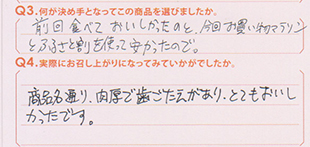 Q3.何が決め手となってこの商品を選びましたか。
前回食べておいしかったのと、今回お買い物マラソン
とふるさと割を使って安かったので。
Q4.実際にお召し上がりになってみていかがでしたか。
商品名通り、肉厚で歯ごたえがあり、とてもおいし
かったです。